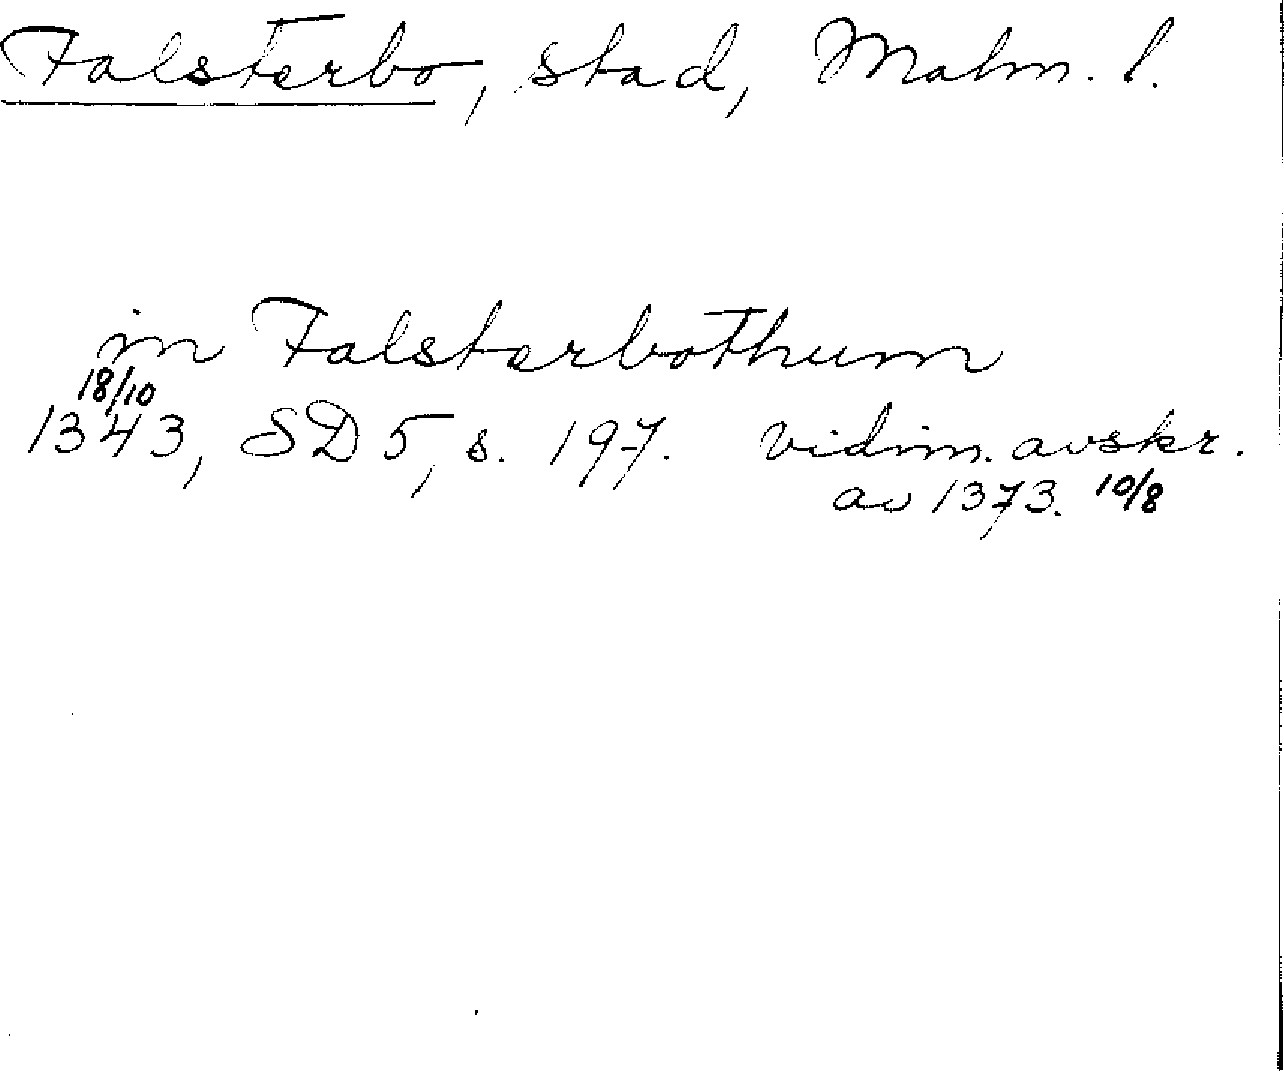 Falsterbo, stad, Malm. l.
in Falsterbothum
18/10
1343, SD 5, s. 197. vidim. avskr.
av 1373. 10/8